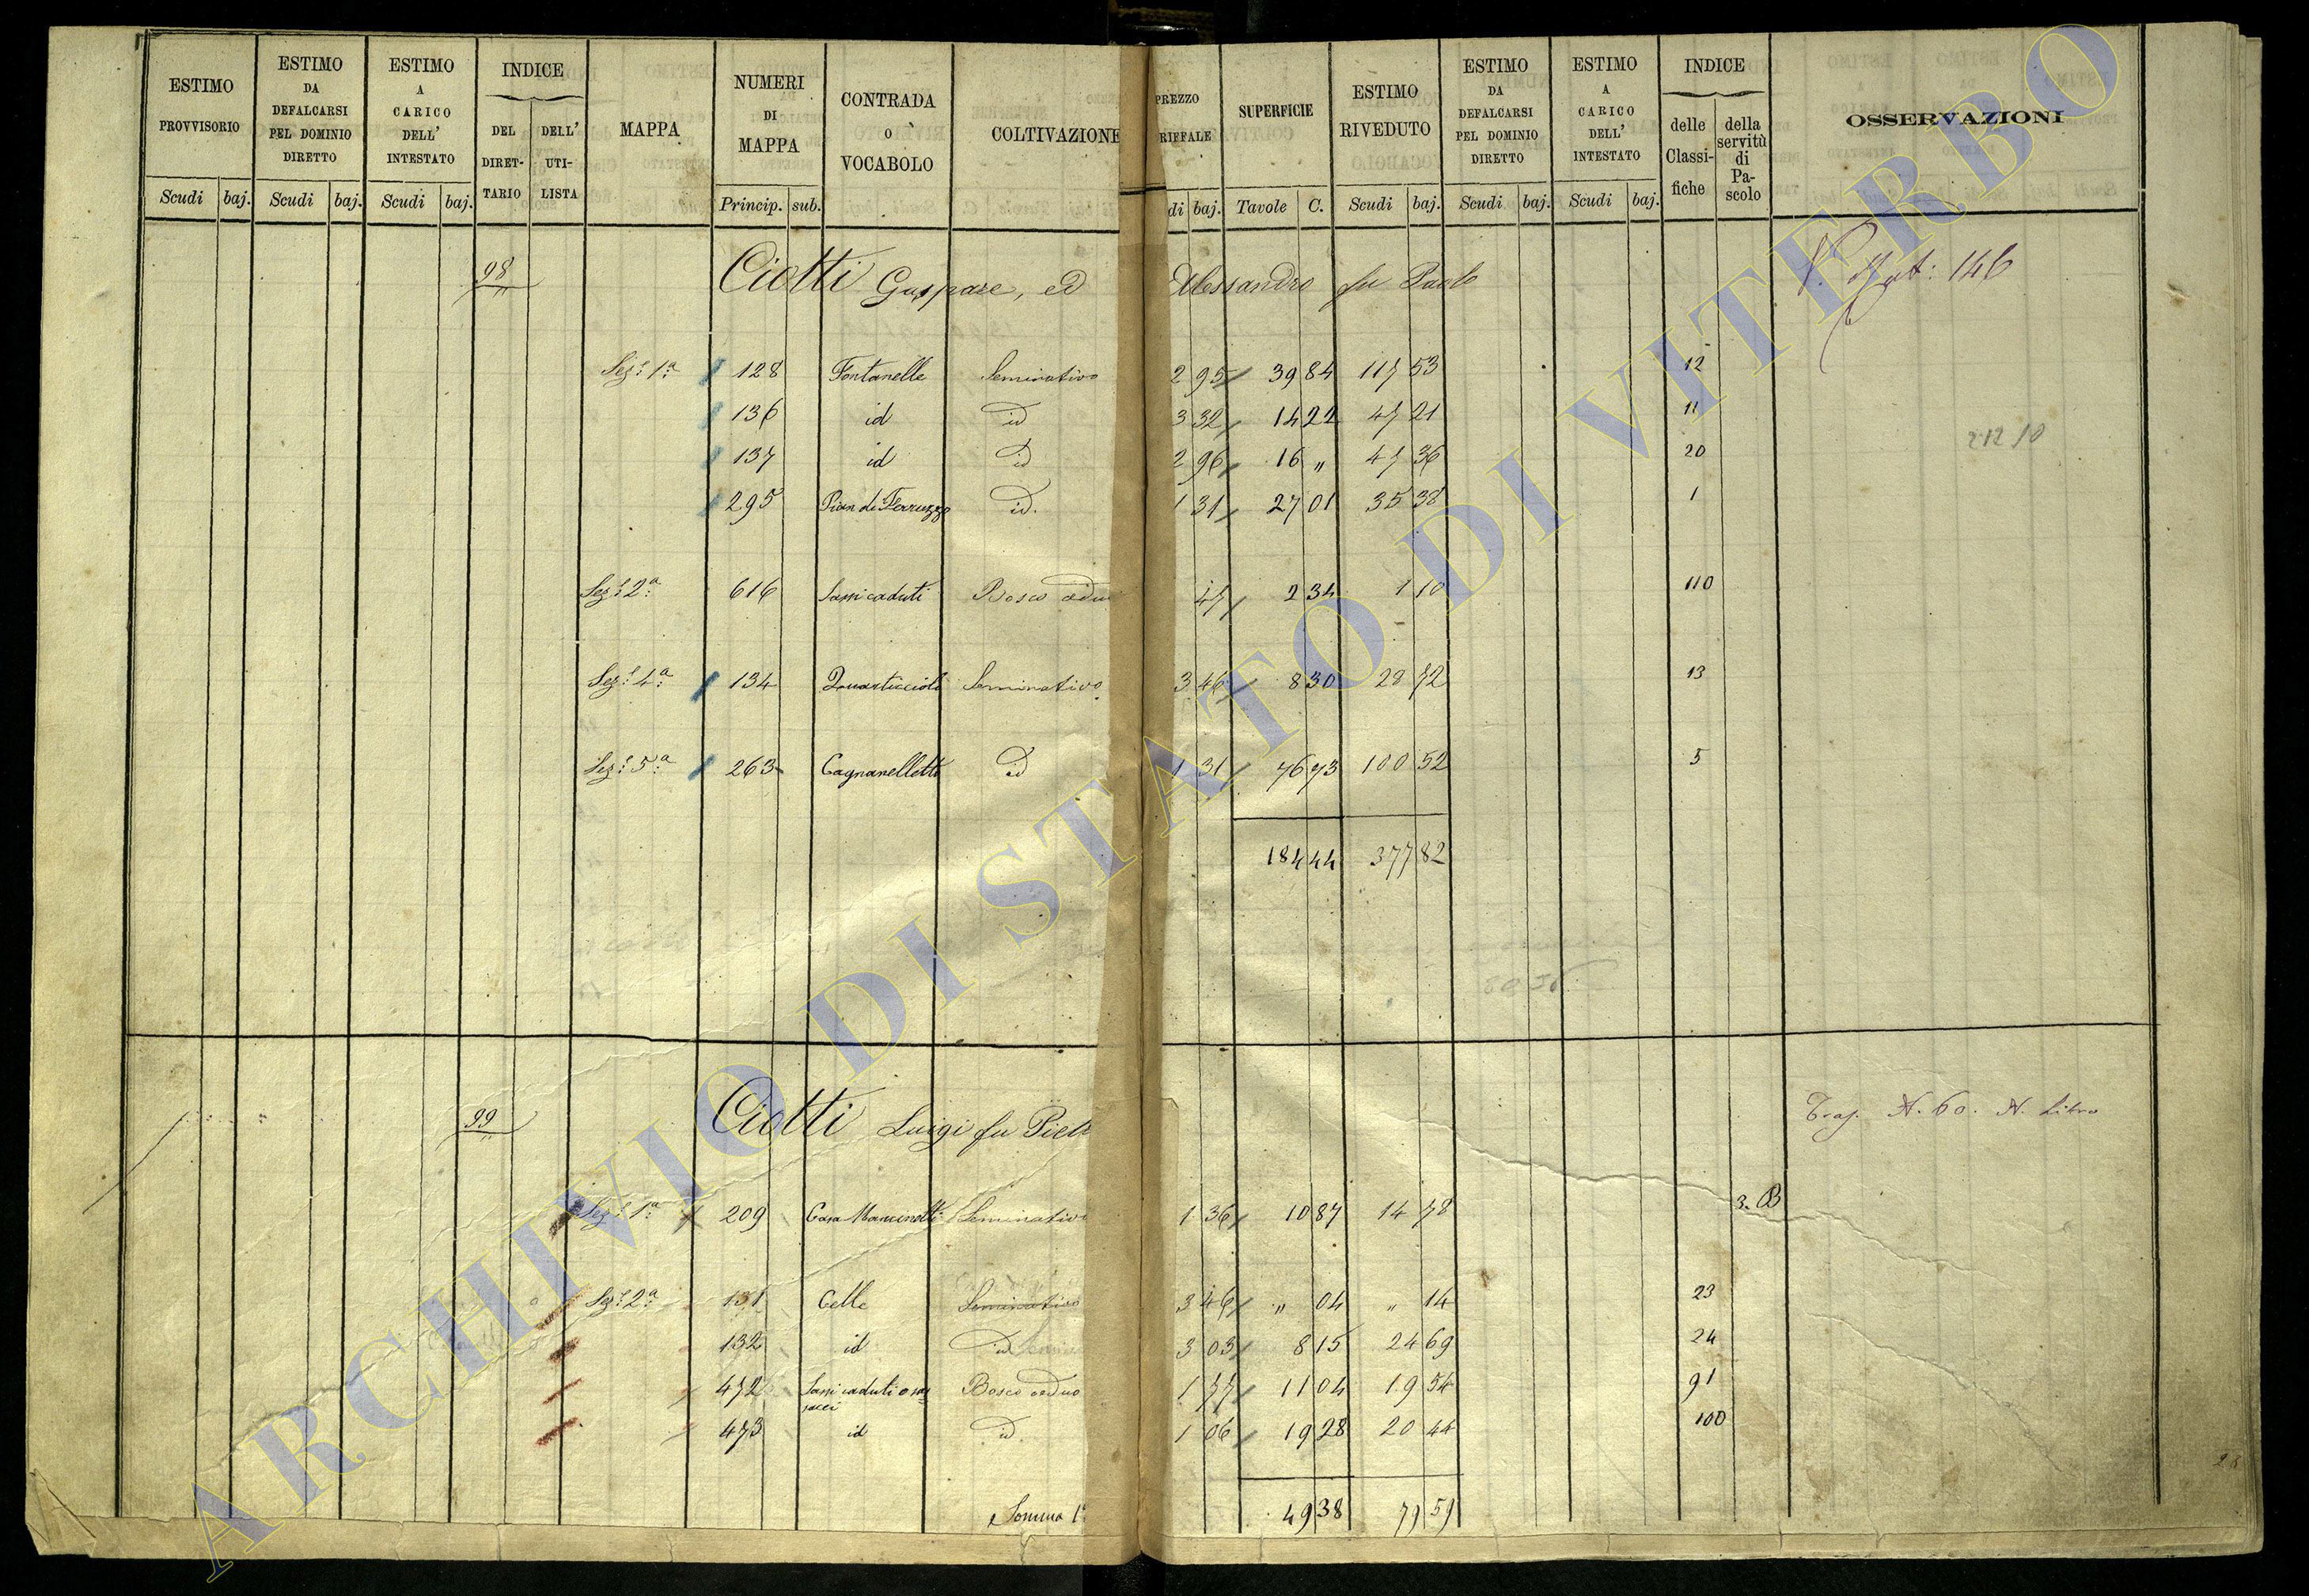 ESTIMO PROVVISORIO | ESTIMO DA DEFALCARSI PEL DOMINIO DIRETTO | ESTIMO A CARICO DELL' INTESTATO | INDICE DEL DIRETTARIO | DELL' UTILISTA | MAPPA | NUMERI DI MAPPA | CONTRADA O VOCABOLO | COLTIVAZIONE | PREZZO RIFFALE | SUPERFICIE | ESTIMO RIVEDUTO | ESTIMO DA DEFALCARSI PEL DOMINIO DIRETTO | ESTIMO A CARICO DELL' INTESTATO | INDICE delle Classifiche | della servitù di Pascolo | OSSERVAZIONI
Scudi baj. | Scudi baj. | Scudi baj. | Princip. sub. | di baj. | Tavole C. | Scudi baj. | Scudi baj. | Scudi baj.
98 Ciotti Gaspare, ed Alessandro fu Paolo 146
Sez: 1ª 128 Fontanelle Seminativo 2 95 39 84 117 53 12
136 id id 3 32 14 22 47 21 11
137 id id 2 96 16 " 47 36 20
295 Pian di Ferruzzo id. 1 31 27 01 35 38 1
2 12 10
Sez: 2ª 616 Sassi caduti Bosco cedu 47 2 34 1 10 110
Sez: 4ª 134 Quarticcioli Seminativo 3 46 8 30 28 72 13
Sez: 5ª 263 Cagnanelletti id 1 31 76 73 100 52 5
184 44 377 82
99 Ciotti Luigi fu Piet N. 60. N. Libro
Sez: 1ª 209 Casa Mancinelli Seminativo 1 36 10 87 14 78 3. B
Sez: 2ª 131 Celle Seminativo 3 46 " 04 " 14 23
132 id id 3 03 8 15 24 69 24
472 Sassi caduti o Bosco ceduo 1 77 11 04 19 54 91
473 id id 1 06 19 28 20 44 100
Somma 49 38 79 59
ARCHIVIO DI STATO DI VITERBO